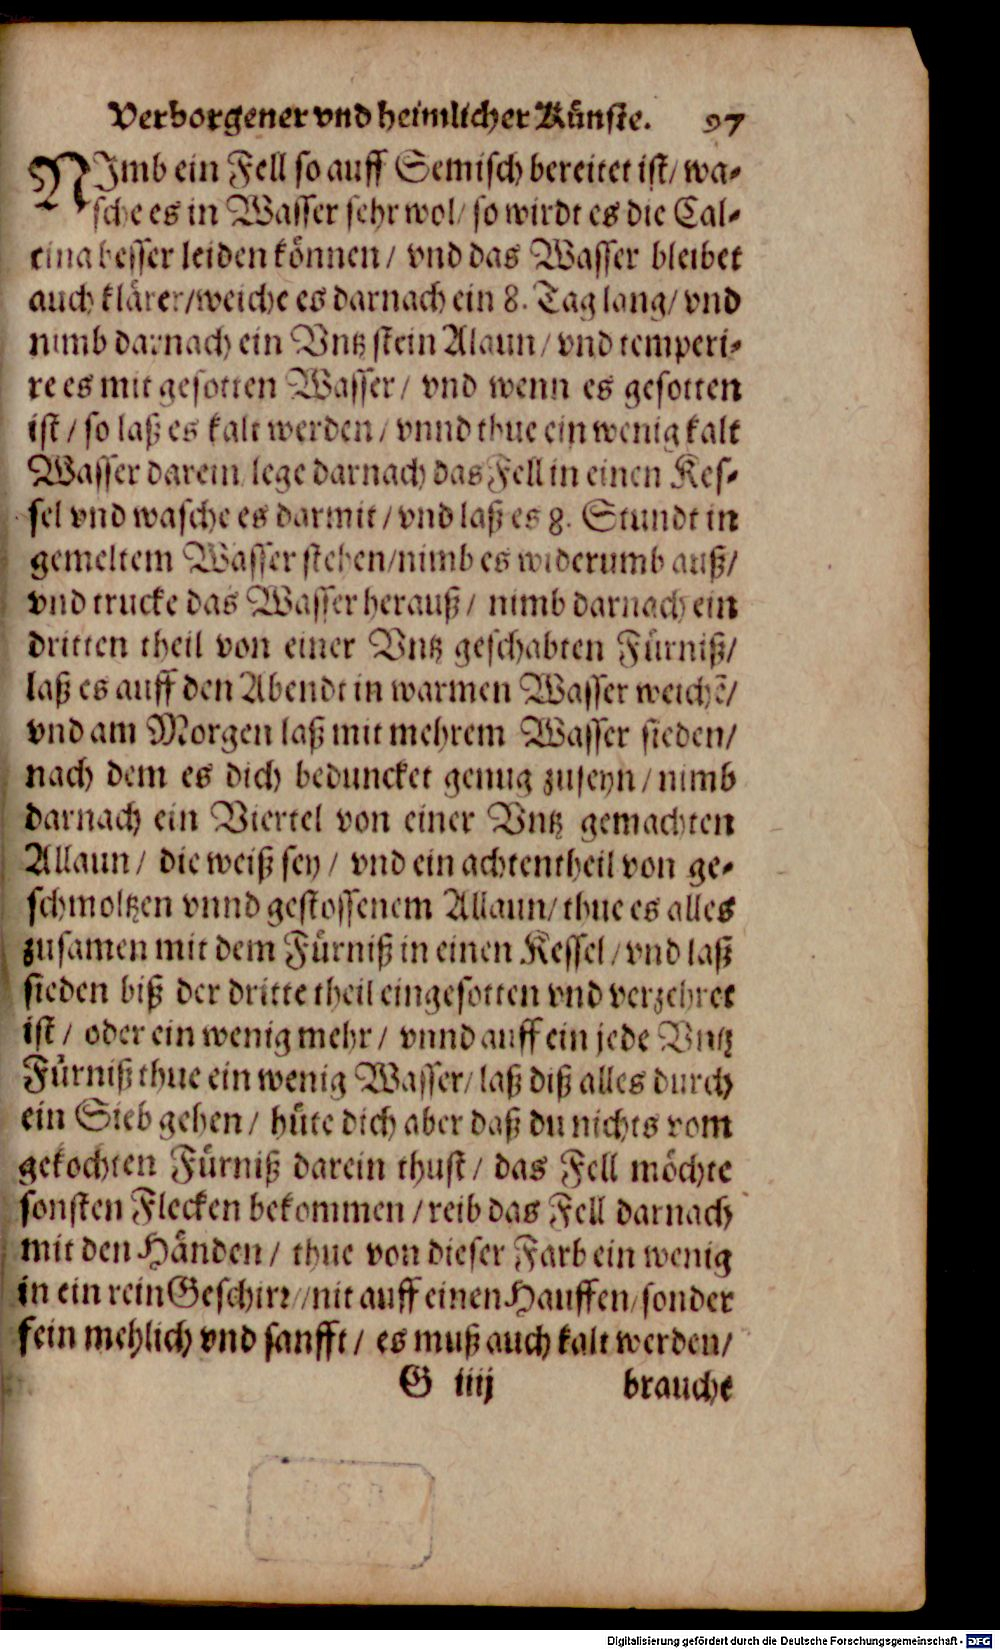 Verborgener vnd heimlicher Künste. 97
NImb ein Fell so auff Semisch bereitet ist/ wa-
sche es in Wasser sehr wol/ so wirdt es die Cal-
cina besser leiden können/ vnd das Wasser bleibet
auch klärer/weiche es darnach ein 8. Tag lang/ vnd
nimb darnach ein Vntz stein Alaun/ vnd temperi-
re es mit gesotten Wasser/ vnd wenn es gesotten
ist/ so laß es kalt werden/ vnnd thue ein wenig kalt
Wasser darein/ lege darnach das Fell in einen Kes-
sel vnd wasche es darmit/ vnd laß es 8. Stundt in
gemeltem Wasser stehen/nimb es widerumb auß/
vnd trucke das Wasser herauß/ nimb darnach ein
dritten theil von einer Vntz geschabten Fürniß/
laß es auff den Abendt in warmen Wasser weichē/
vnd am Morgen laß mit mehrem Wasser sieden/
nach dem es dich beduncket genug zuseyn/ nimb
darnach ein Viertel von einer Vntz gemachten
Allaun/ die weiß sey/ vnd ein achtentheil von ge-
schmoltzen vnnd gestossenem Allaun/ thue es alles
zusamen mit dem Fürniß in einen Kessel/ vnd laß
sieden biß der dritte theil eingesotten vnd verzehret
ist/ oder ein wenig mehr/ vnnd auff ein jede Vntz
Fürniß thue ein wenig Wasser/ laß diß alles durch
ein Sieb gehen/ hüte dich aber daß du nichts vom
gekochten Fürniß darein thust/ das Fell möchte
sonsten Flecken bekommen/ reib das Fell darnach
mit den Händen/ thue von dieser Farb ein wenig
in ein rein Geschirr/nit auff einen Hauffen/ sonder
fein mehlich vnd sanfft/ es muß auch kalt werden/
G iiij brauche
Digitalisierung gefördert durch die Deutsche Forschungsgemeinschaft - DFG